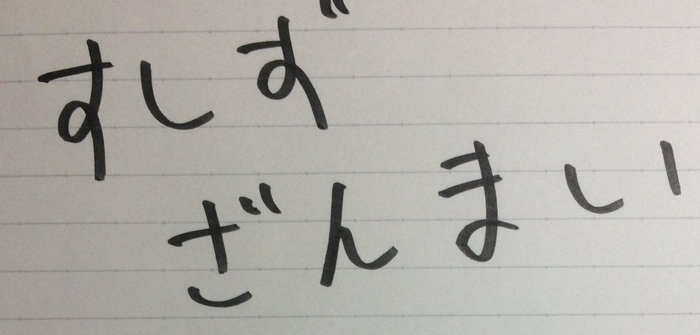 すしず
ざんまい